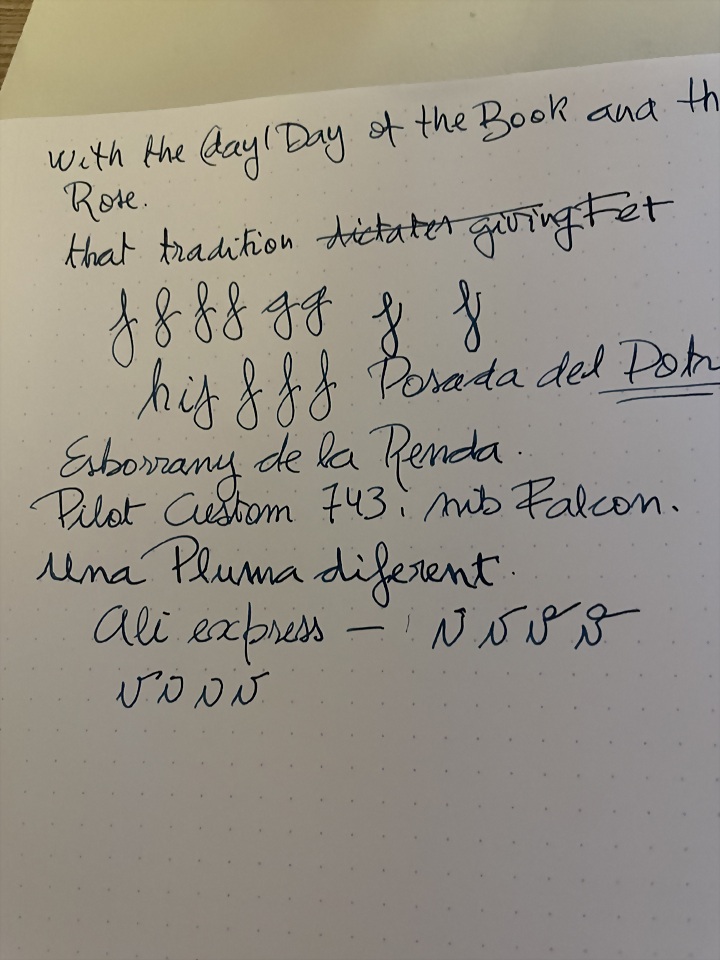 with the day/Day of the Book and th
Rose.
that tradition dictates giving Fet
f f f f g g f f
his f f f Posada del Potr
Esborrany de la Renda.
Pilot Custom 743: nib Falcon.
Una Pluma diferent.
Ali express —